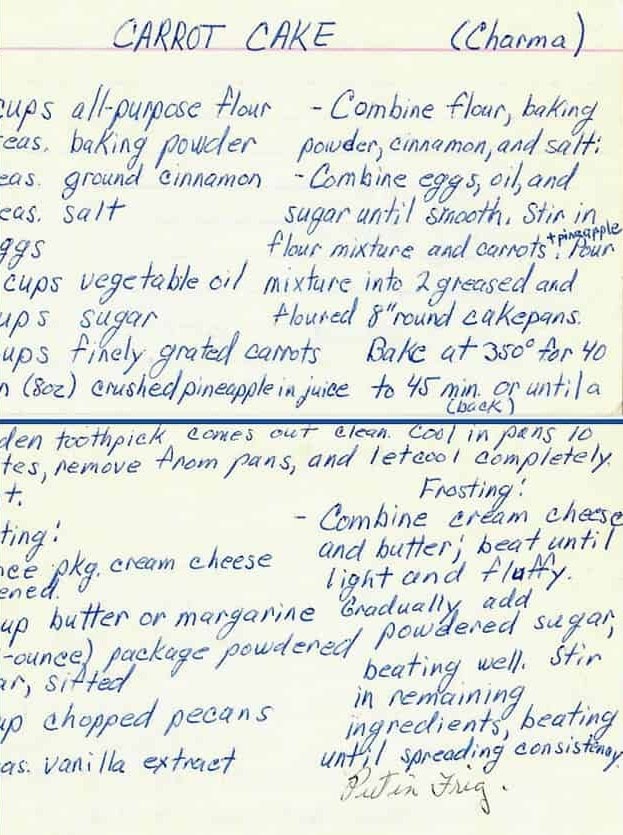 CARROT CAKE (Charma)
cups all-purpose flour
eas. baking powder
eas. ground cinnamon
eas. salt
ggs
cups vegetable oil
ups sugar
ups finely grated carrots
n (8oz) crushed pineapple in juice
- Combine flour, baking
powder, cinnamon, and salt;
- Combine eggs, oil, and
sugar until smooth. Stir in
flour mixture and carrots + pineapple. Pour
mixture into 2 greased and
floured 8" round cakepans.
Bake at 350° for 40
to 45 min. or until a
(back)
den toothpick comes out clean. Cool in pans 10
tes, remove from pans, and let cool completely.
t.
ting!
nce pkg. cream cheese
ened.
up butter or margarine
-ounce) package powdered
ar, sifted
up chopped pecans
as. vanilla extract
Frosting!
- Combine cream cheese
and butter; beat until
light and fluffy.
Gradually add
powdered sugar,
beating well. Stir
in remaining
ingredients, beating
until spreading consistency.
Put in Frig.